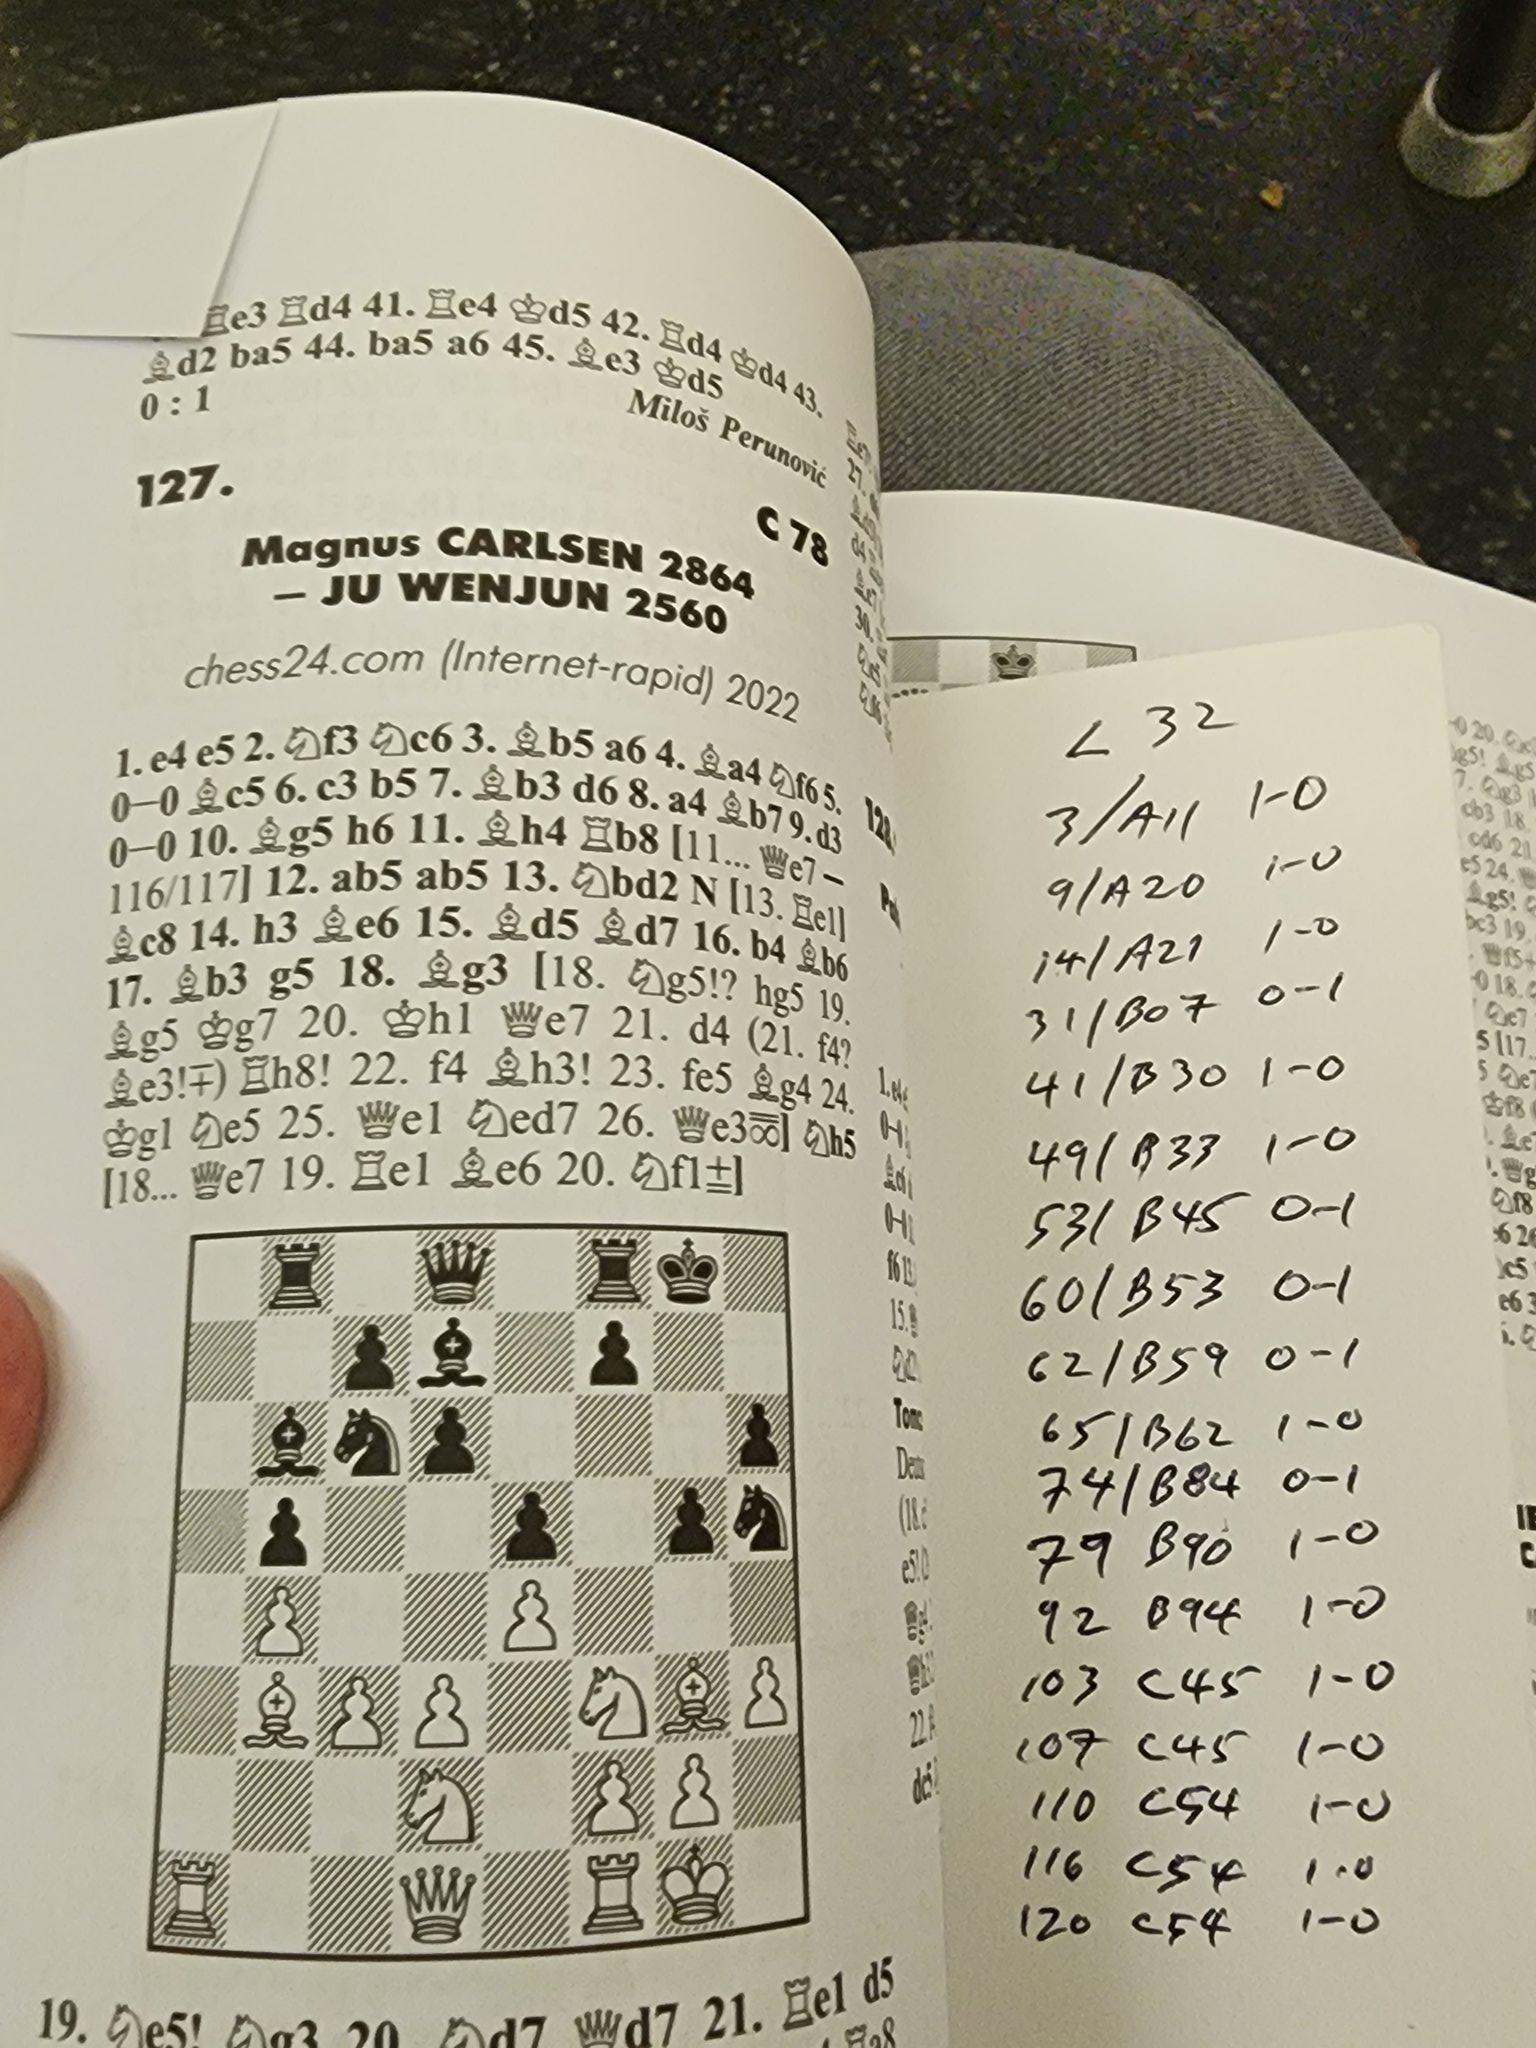 ♖e3 ♖d4 41. ♖e4 ♔d5 42. ♖d4 ♔d4 43.
♗d2 ba5 44. ba5 a6 45. ♗e3 ♔d5
0 : 1
Miloš Perunović
127.
C 78
Magnus CARLSEN 2864
– JU WENJUN 2560
chess24.com (Internet-rapid) 2022
1. e4 e5 2. ♘f3 ♘c6 3. ♗b5 a6 4. ♗a4 ♘f6 5.
0–0 ♗c5 6. c3 b5 7. ♗b3 d6 8. a4 ♗b7 9. d3
0–0 10. ♗g5 h6 11. ♗h4 ♖b8 [11... ♕e7 –
116/117] 12. ab5 ab5 13. ♘bd2 N [13. ♖e1]
♗c8 14. h3 ♗e6 15. ♗d5 ♗d7 16. b4 ♗b6
17. ♗b3 g5 18. ♗g3 [18. ♘g5!? hg5 19.
♗g5 ♔g7 20. ♔h1 ♕e7 21. d4 (21. f4?
♗e3!∓) ♖h8! 22. f4 ♗h3! 23. fe5 ♗g4 24.
♔g1 ♘e5 25. ♕e1 ♘ed7 26. ♕e3] ♘h5
[18... ♕e7 19. ♖e1 ♗e6 20. ♘f1±]
19. ♘e5! ♘g3 20. ♘d7 ♕d7 21. ♖e1 d5
L 32
3/A11 1-0
9/A20 1-0
14/A21 1-0
31/B07 0-1
41/B30 1-0
49/B33 1-0
53/B45 0-1
60/B53 0-1
62/B59 0-1
65/B62 1-0
74/B84 0-1
79 B90 1-0
92 B94 1-0
103 C45 1-0
107 C45 1-0
110 C54 1-0
116 C54 1-0
120 C54 1-0